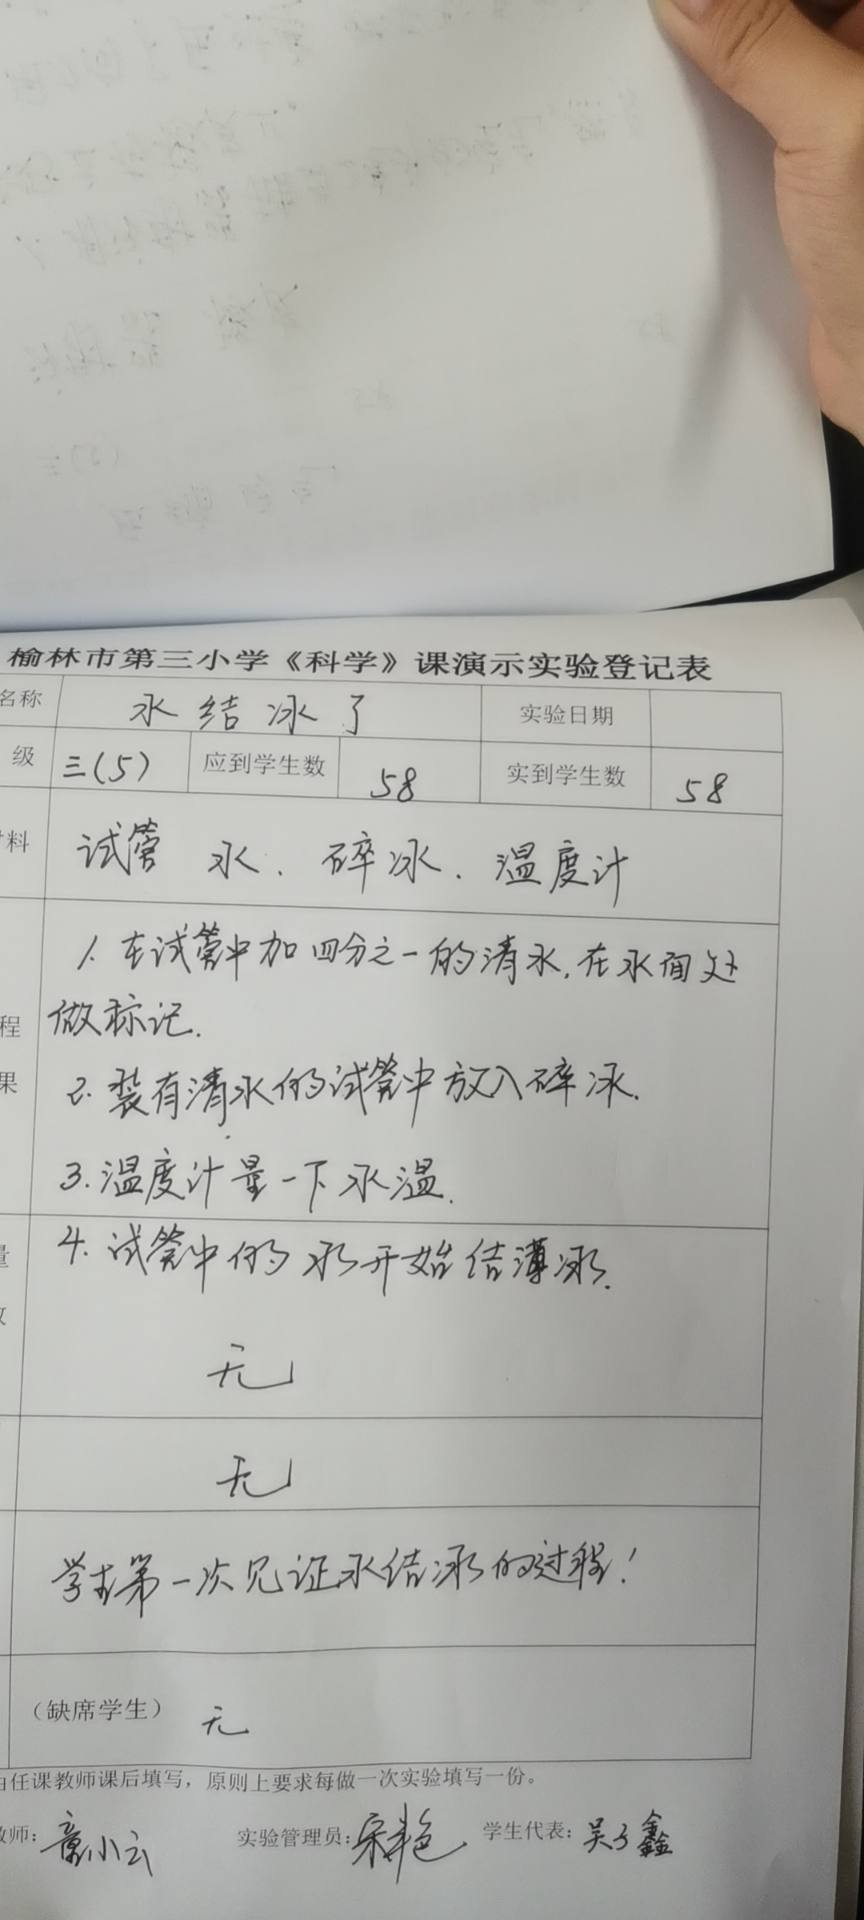 榆林市第三小学《科学》课演示实验登记表
名称 水结冰了 实验日期
级 三(5) 应到学生数 58 实到学生数 58
料 试管 水、碎冰、温度计
1. 在试管中加四分之一的清水,在水面处
做标记.
程
果
2. 装有清水的试管中放入碎冰.
3. 温度计量一下水温.
4. 试管中的水开始结薄冰.
量
无
无
学生第一次见证水结冰的过程!
(缺席学生) 无
由任课教师课后填写,原则上要求每做一次实验填写一份。
教师: 童小云 实验管理员: 学生代表: 吴子鑫